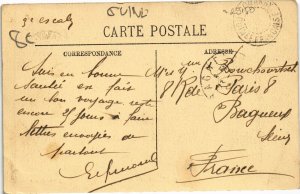 3e escale
CARTE POSTALE
CORRESPONDANCE
ADRESSE
Suis en bonne
santé ai fait
un bon voyage reste
encore 25 jours à faire
lettres envoyées de
partout
Mr et Mme
8 R de
Paris 8
Bagneux
Seine
France